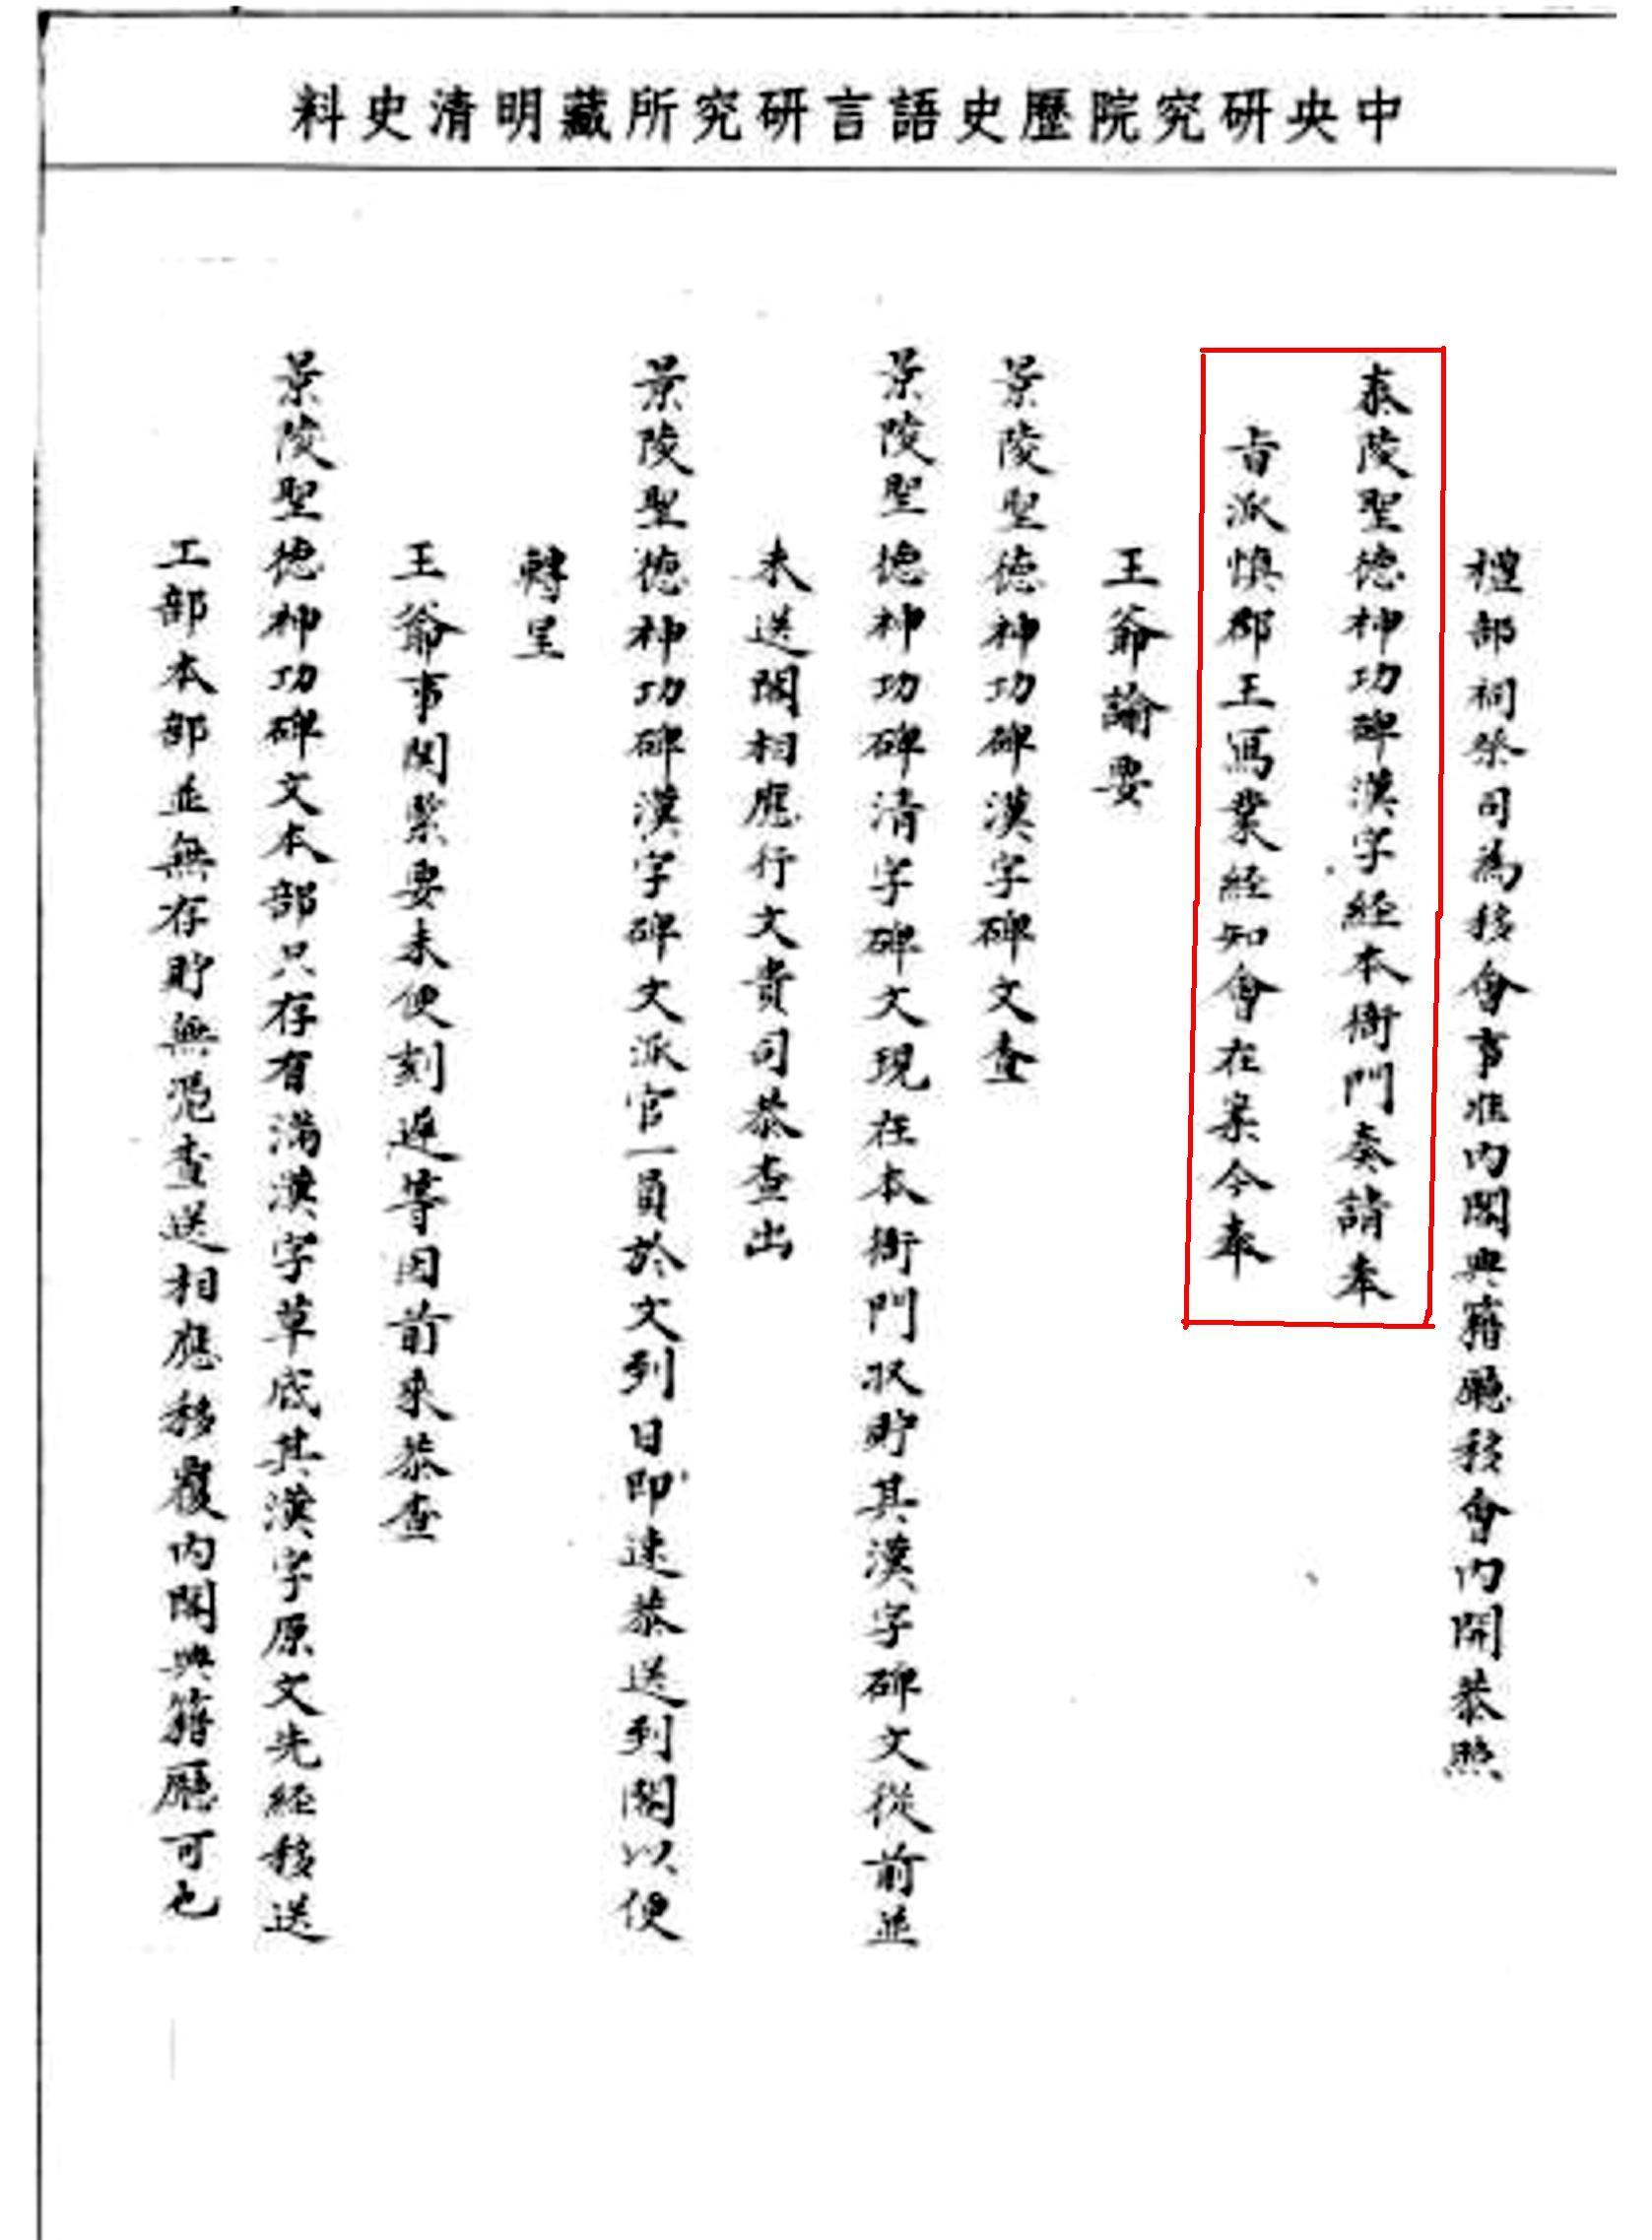 中央研究院歷史語言研究所藏明清史料
禮部祠祭司為移會事准內閣典籍廳移會內開恭照
泰陵聖德神功碑漢字經本衙門奏請奉
旨派慎郡王寫業經知會在案今奉
王爺諭要
景陵聖德神功碑漢字碑文查
景陵聖德神功碑清字碑文現在本衙門收貯其漢字碑文從前並
未送閣相應行文貴司恭查出
景陵聖德神功碑漢字碑文派官一員於文到日即速恭送到閣以便
轉呈
王爺事関緊要未便刻遲等因前來恭查
景陵聖德神功碑文本部只存有滿漢字草底其漢字原文先經移送
工部本部並無存貯無憑查送相應移覆內閣典籍廳可也